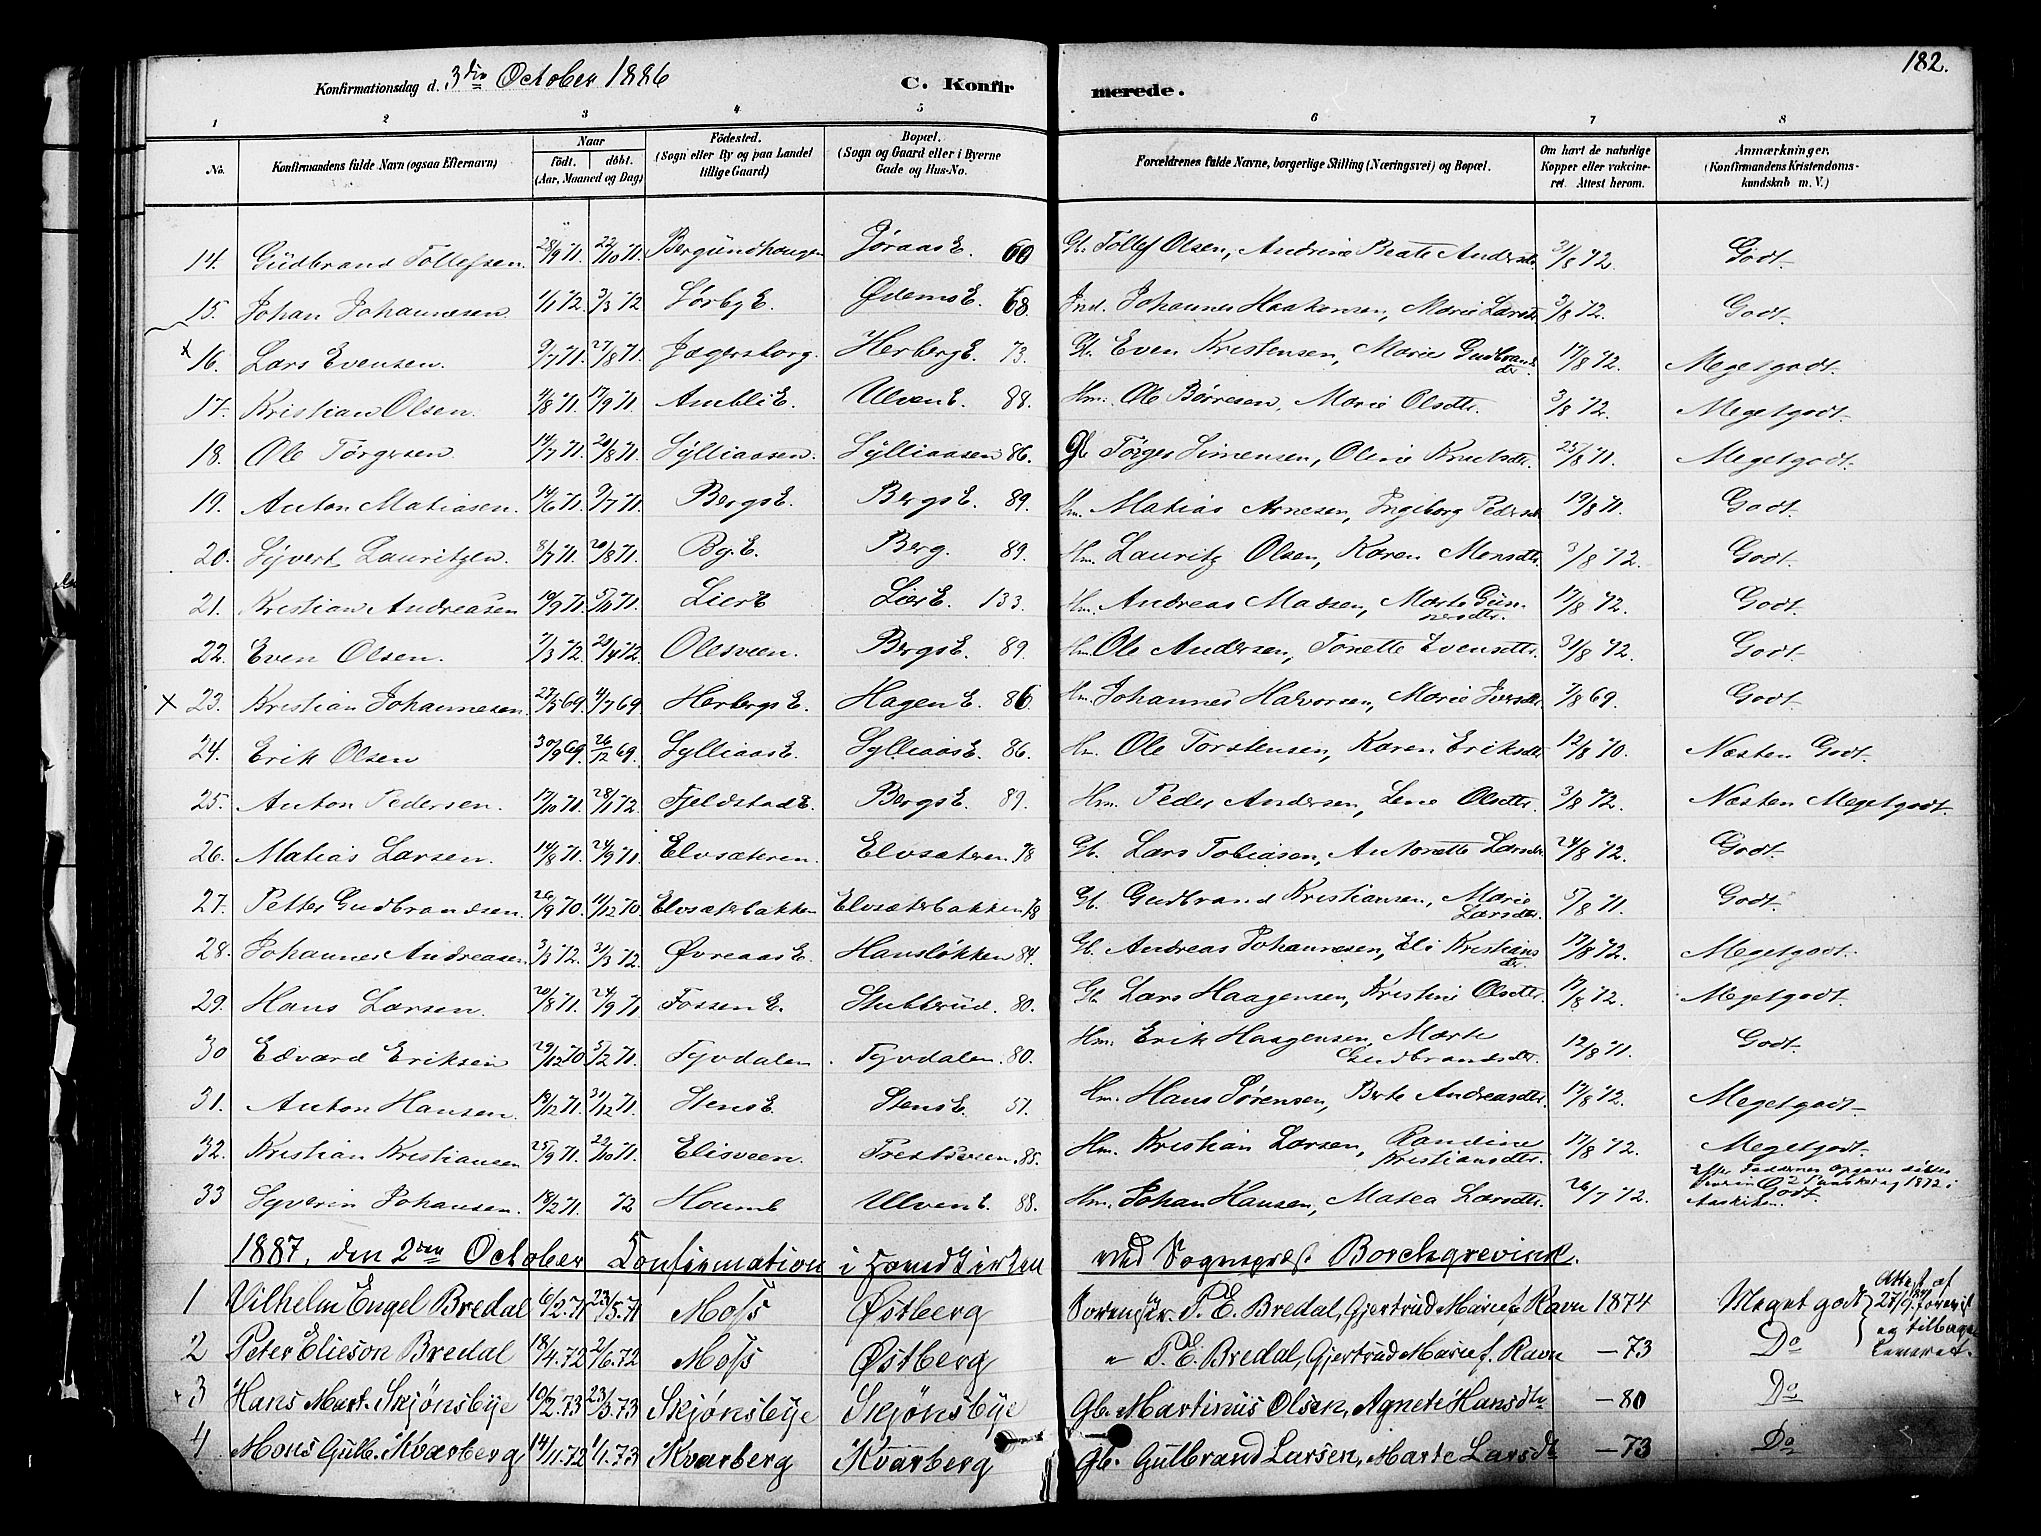 182.
Konfirmationsdag d. 3die October 1886 C. Konfirmerede.
1 2 3 4 5 6 7 8
No. Konfirmandens fulde Navn (ogsaa Efternavn) Naar födt. döbt. (Aar, Maaned og Dag) Födested. (Sogn eller By og paa Landet tillige Gaard) Bopæl. (Sogn og Gaard eller i Byerne Gade og Hus-No. Forældrenes fulde Navne, borgerlige Stilling (Næringsvei) og Bopæl. Om havt de naturlige Kopper eller vakcineret. Attest herom. Anmærkninger, (Konfirmandens Kristendomskundskab m. V.)
14. Gudbrand Tollefsen. 28/9 71. 22/10 71. Bergundhaugen Jøraas E. 60 Gb. Tollef Olsen, Andrine Beate Andersdtr 3/8 72. Godt.
15. Johan Johannesen. 1/1 72 3/3 72 Sørby E. Ødems E. 68. Ind. Johannes Haakensen, Marie Larsdtr 3/8 72. Godt.
x 16. Lars Evensen. 9/7 71. 27/8 71. Jægersborg. Herberg E. 73. Gb. Even Kristensen, Marie Gudbrandsdtr. 17/8 72. Megetgodt.
17. Kristian Olsen. 4/8 71. 17/9 71. Ambli E. Ulven E. 88. Hm. Ole Børresen, Marie Olsdtr. 3/8 72. Megetgodt.
18. Ole Törgersen. 14/7 71. 20/8 71. Sylliaasen. Sylliaasen 86. Gb Törger Simensen, Oline Knutsdtr. 25/8 71. Megetgodt.
19. Anton Matiasen. 14/6 71. 9/7 71. Bergs E. Bergs E. 89. Hm. Matias Arnesen, Ingeborg Pedersdtr 19/8 71. Godt.
20. Syvert Lauritzen. 8/7 71. 20/8 71. By. E. Berg. 89. Hm. Lauritz Olsen, Karen Mensdtr. 3/8 72. Godt.
21. Kristian Andreasen 19/9 71. 5/11 71. Lier E Lier E. 133. Hm. Andreas Madsen, Marte Gunnersdtr. 17/8 72. Godt.
22. Even Olsen. 7/3 72. 21/4 72. Olesveen. Bergs E. 89. Hm. Ole Andersen, Tonette Evensdtr. 31/8 72. Godt.
x 23. Kristian Johannesen. 27/5 69. 4/7 69 Herbergs E. Hagen E. 86. Hm. Johannes Halvorsen, Marie Iversdtr. 7/8 69. Godt.
24. Erik Olsen 30/9 69. 26/12 69. Sylliaas E. Sylliaas E. 86. Hm. Ole Torstensen, Karen Eriksdtr 12/8 70. Næsten Godt.
25. Anton Pedersen. 17/10 71. 28/1 72. Fjeldstad E. Bergs E. 89. Hm. Peder Andersen, Lene Olsdtr. 3/8 72. Næsten Megetgodt.
26. Matias Larsen. 14/8 71. 24/9 71. Elvsæteren. Elvsæteren 78 Gb. Lars Tobiasen, Antonette Larsdtr 24/8 72. Godt.
27. Petter Gudbrandsen. 26/9 70. 11/12 70. Elvsæterbakken Elvsæterbakken 78 Gb. Gudbrand Kristiansen, Marie Larsdtr. 5/8 71. Godt.
28. Johannes Andreasen. 3/3 72. 31/3 72. Øvreaas E. Hansløkken 84. Gb. Andreas Johannesen, Eli Kristiansdtr. 17/8 72. Megetgodt.
29. Hans Larsen. 20/8 71. 24/9 71 Fossen E. Stubberud. 80. Gb Lars Haagensen, Kristine Olsdtr. 17/8 72. Megetgodt.
30 Edvard Eriksen 29/12 70 5/2 71. Tyvdalen. Tyvdalen. 80. Hm. Erik Haagensen, Marte Gudbrandsdtr. 12/8 71. Godt.
31. Anton Hansen. 18/12 71. 31/12 71. Stens E Stens E. 57. Hm. Hans Sörensen, Berte Andreasdtr. 17/8 72. Megetgodt.
32. Kristian Kristiansen 25/9 71. 22/10 71. Elisveen. 85. Hm. Kristian Larsen, Randine Kristiansdtr. 17/8 72. Megetgodt.
33 Syverin Johansen. 18/2 71. 72 Houmb Ulven E. 88. Hm. Johan Hansen, Matea Larsdtr. 26/7 72. Godt.
1887, den 2den October Confirmation i Hovedkirken ved Sognepræst Borchgrevink.
1 Vilhelm Engel Bredal 6/2.71 23/5.71 Moss Østberg Sorenskr. P. E. Bredal, Gjertrud Marie f. Ravn 1874 Meget godt
2 Peter Elieson Bredal 18/4.72 2/6.72 Moss Østberg " P. E. Bredal, Gjertrud Marie f. Ravn —73 Do
Attest af 27/9 87 forevist og tilbageleveret.
+ 3 Hans Mart. Skjönsbÿe 10/2.73 23/3.73 Skjönsbÿe Skjönsbÿe Gb. Martinus Olsen, Agnete Hansdtr —80 Do
4 Mons Gulb. Kvarberg 14/11.72 1/1.73 Kvarberg Kvarberg Gb. Gulbrand Larsen, Marte Larsdtr —73 Do